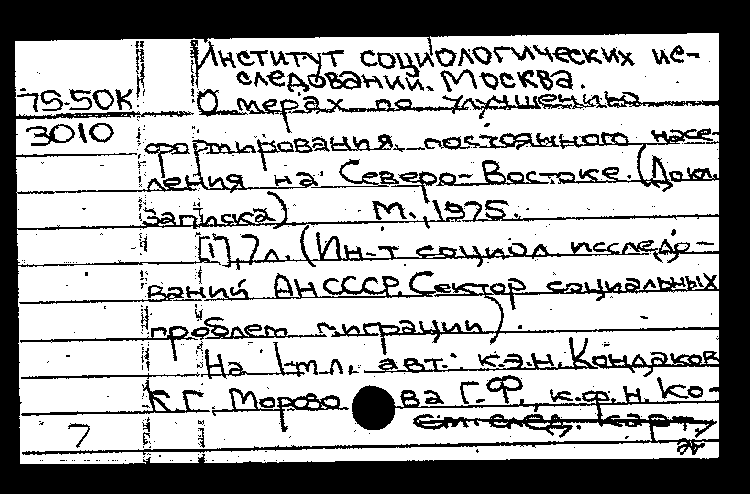 Институт социологических ис-
следований. Москва.
75-50К О мерах по улучшению
3010 формирования постоянного насе-
ления на Северо-Востоке. (Докл.
записка) М., 1975.
[1], 7 л. (Ин-т социол. исследо-
ваний АН СССР. Сектор социальных
проблем миграции).
На 1 тл. авт.: к.э.н. Кондаков
К.Г., Морозова Г.Ф., к.ф.н. Ко-
7 см. след. карт.